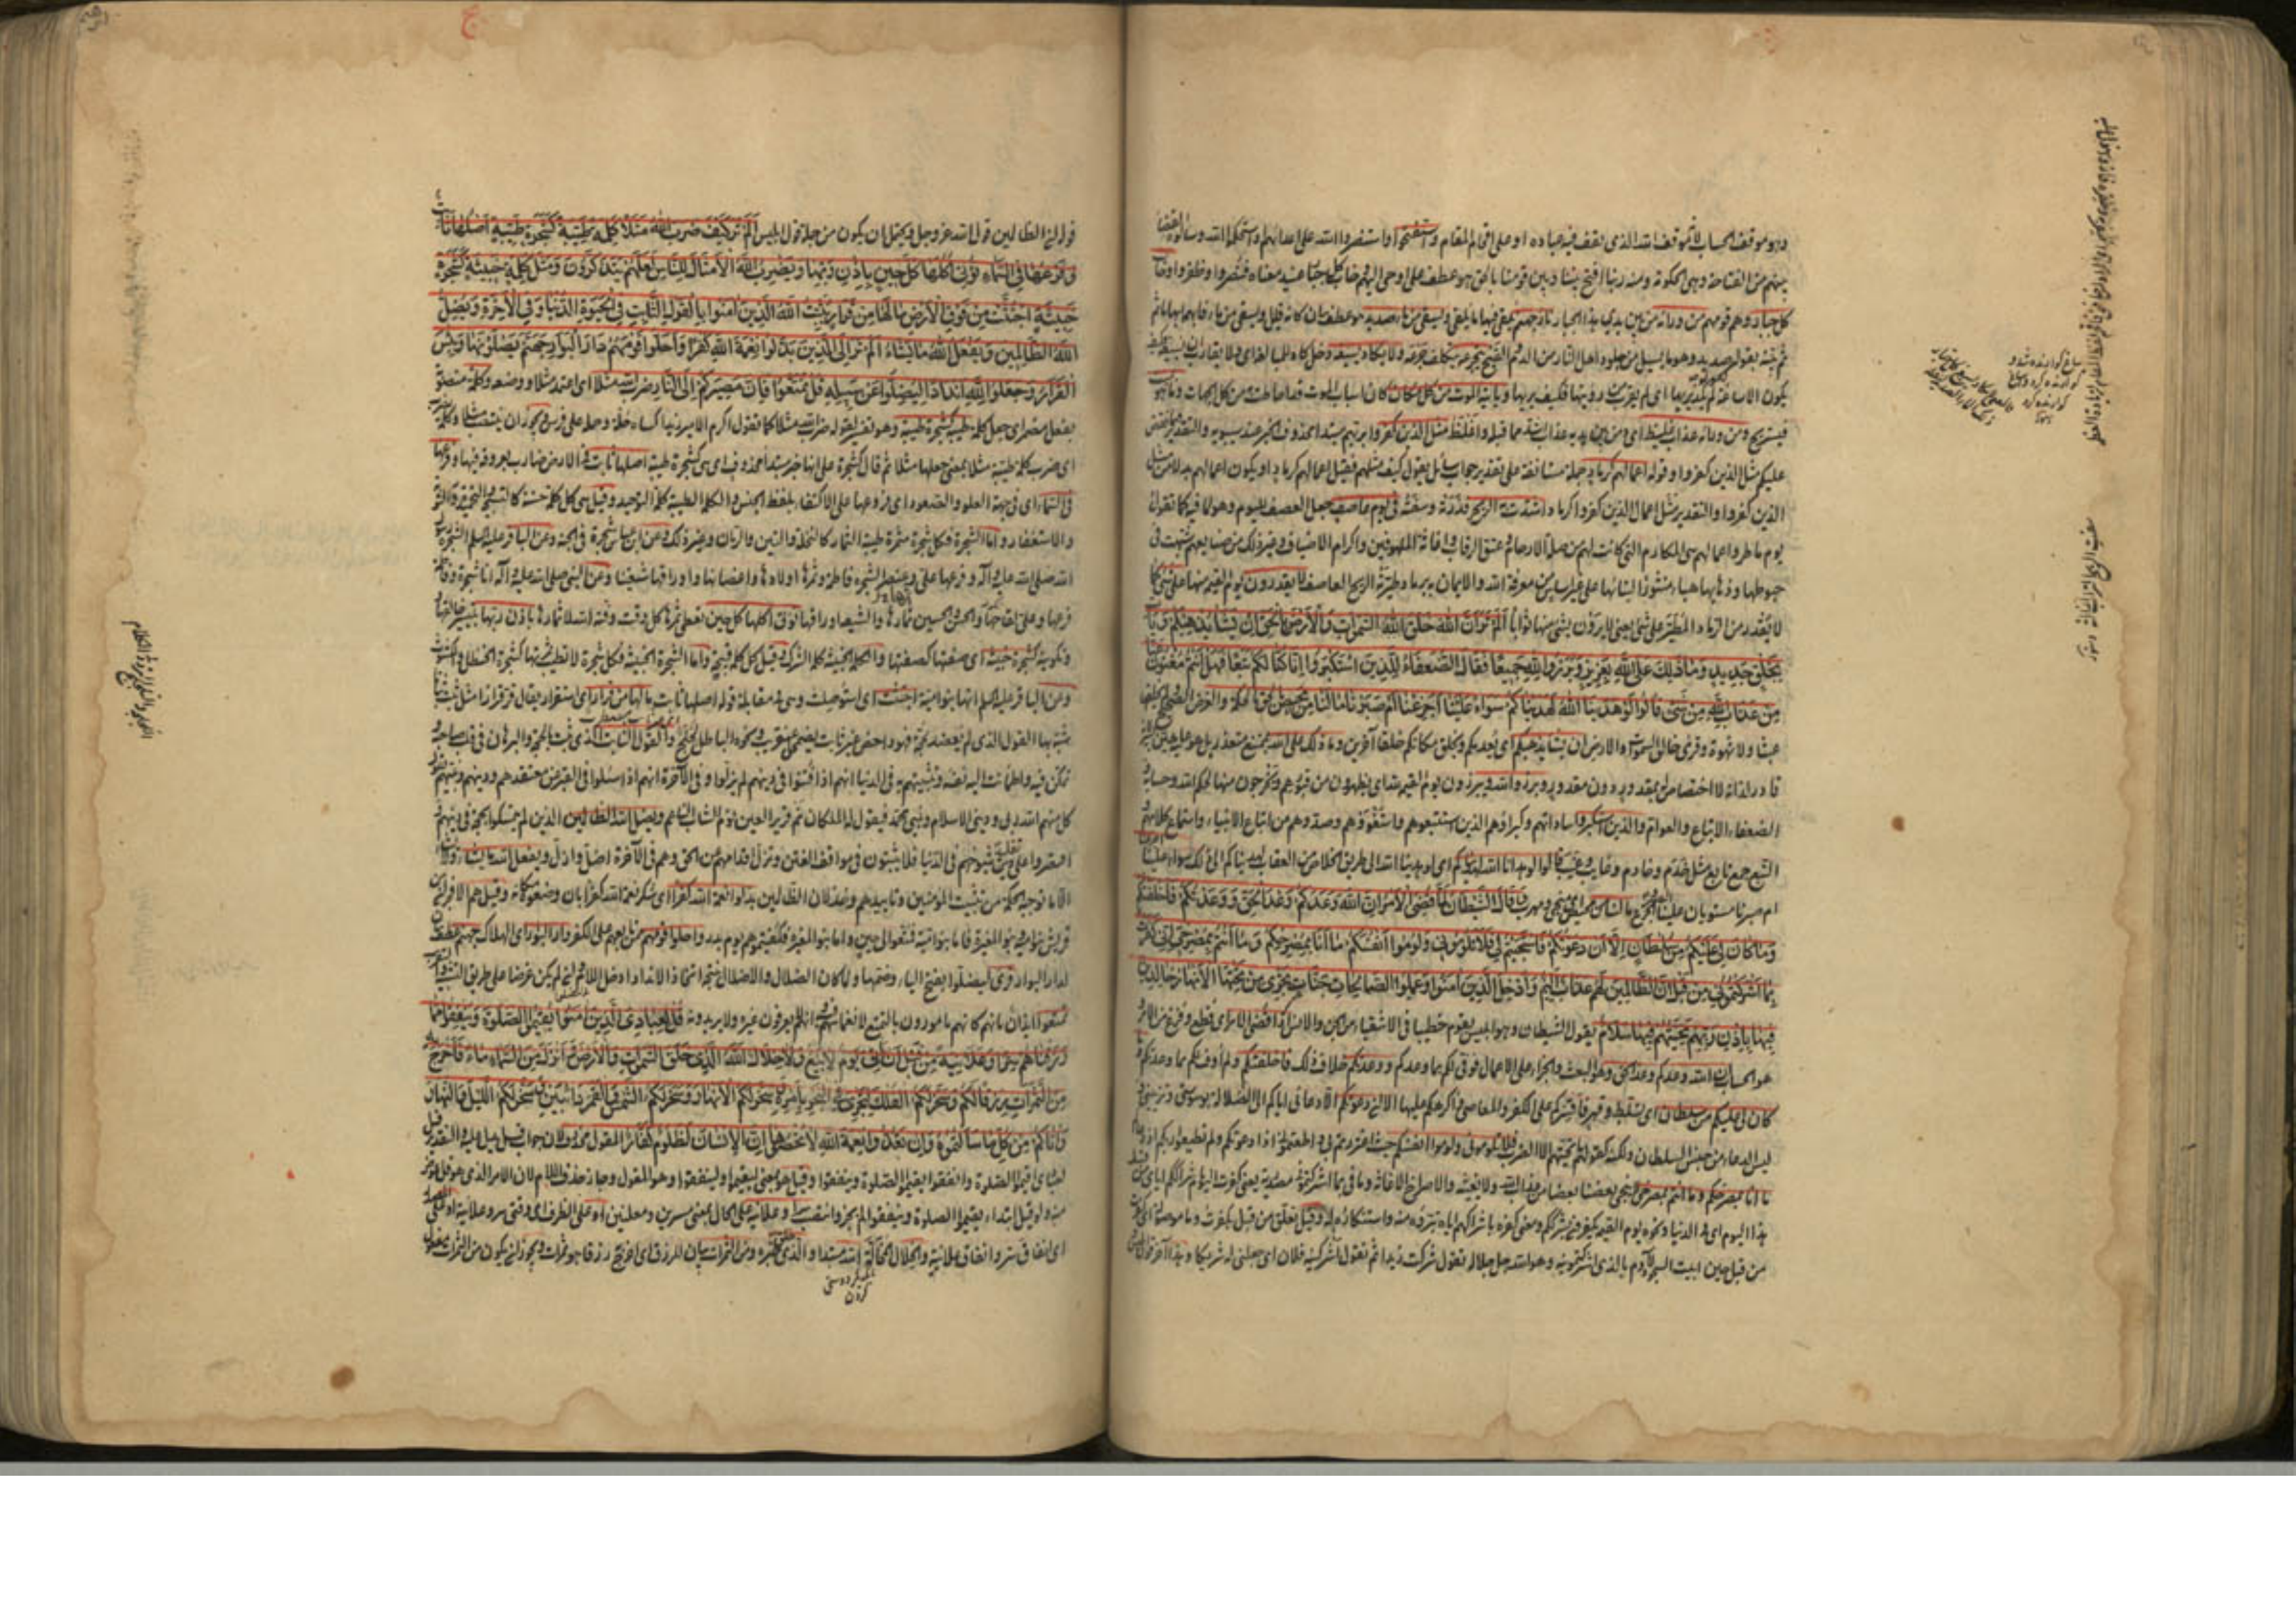 وهو موقف الحساب لأنه موقف الله الذي يقف فيه عباده او على اقحام المقام واستفتحوا واستنصروا الله على اعدائهم او استحكموا الله وسألوه القضاء
بينهم من الفتاحة وهي الحكومة ومنه ربنا افتح بيننا وبين قومنا بالحق وهو عطف على اوحى اليهم وخاب كل جبار عنيد معناه فنصروا وظفروا وخاب
كل جبار وهم قومهم من ورائه من بين يدي هذا الجبار نار جهنم يلقى فيها ما يلقى ويسقى من ماء صديد
يكون الاساغة كقوله لم يكد يريها اى لم يقرب من رؤيتها فكيف يريها ويأتيه الموت من كل مكان كان اسباب الموت قد احاطت به من كل الجهات وما هو بميت
فيستريح ومن ورائه عذاب غليظ اى ومن بين يديه عذاب اشد مما قبله واغلظ مثل الذين كفروا بربهم مبتدأ محذوف الخبر عند سيبويه والتقدير فيما يقص
عليكم مثل الذين كفروا وقوله اعمالهم كرماد جملة مستأنفة على تقدير جواب سائل يقول كيف مثلهم فقيل اعمالهم كرماد او يكون اعمالهم بدلا من مثل
الذين كفروا والتقدير مثل اعمال الذين كفروا كرماد اشتدت به الريح فذرته وسفته في يوم عاصف جعل العصف لليوم وهو لما فيه كما تقول
يوم ماطر واعمالهم هي المكارم التي كانت لهم من صلة الارحام وعتق الرقاب واغاثة الملهوفين واكرام الاضياف وغير ذلك من صنايعهم شبهت في
حبوطها وذهابها هباء منثورا لبنائها على غير اساس من معرفة الله والايمان به برماد طيرته الريح العاصف لا يقدرون يوم القيمة منها على شيء كما
لا يقدر من الرماد المطير على شيء يعني لا يرون بشيء منها ثوابا أَلَمْ تَرَ أَنَّ اللهَ خَلَقَ السَّمَوَاتِ وَالْأَرْضَ بِالْحَقِّ إِنْ يَشَأْ يُذْهِبْكُمْ وَيَأْتِ
بِخَلْقٍ جَدِيدٍ وَمَا ذَلِكَ عَلَى اللهِ بِعَزِيزٍ وَبَرَزُوا لِلهِ جَمِيعًا فَقَالَ الضُّعَفَاءُ لِلَّذِينَ اسْتَكْبَرُوا إِنَّا كُنَّا لَكُمْ تَبَعًا فَهَلْ أَنْتُمْ مُغْنُونَ عَنَّا
مِنْ عَذَابِ اللهِ مِنْ شَيْءٍ قَالُوا لَوْ هَدَانَا اللهُ لَهَدَيْنَاكُمْ سَوَاءٌ عَلَيْنَا أَجَزِعْنَا أَمْ صَبَرْنَا مَا لَنَا مِنْ مَحِيصٍ بالحق اى بالحكمة والغرض الصحيح ولم يخلقها
عبثا ولا شهوة وقرئ خالق السموات والارض ان يشأ يذهبكم اى يعدمكم ويخلق مكانكم خلقا آخرين وما ذلك على الله بممتنع متعذر بل هو عليه هين لأنه
قادر لذاته لا اختصاص له بمقدور دون مقدور وبرزوا لله ويبرزون يوم القيمة لله اى يظهرون من قبورهم ويخرجون منها لحكم الله وحسابه
الضعفاء الاتباع والعوام والذين استكبروا ساداتهم وكبراؤهم الذين استتبعوهم واستغووهم وصدوهم من اتباع الانبياء واستماع كلامهم
التبع جمع تابع مثل خدم وخادم وغايب وغيب قالوا لو هدانا الله لهديناكم اى لو هدينا الله الى طريق الخلاص من العقاب لهديناكم الى ذلك سواء علينا
ام صبرنا مستويان علينا الجزع والصبر ما لنا من محيص اى منجى ومهرب وَقَالَ الشَّيْطَانُ لَمَّا قُضِيَ الْأَمْرُ إِنَّ اللهَ وَعَدَكُمْ وَعْدَ الْحَقِّ وَوَعَدْتُكُمْ فَأَخْلَفْتُكُمْ
وَمَا كَانَ لِيَ عَلَيْكُمْ مِنْ سُلْطَانٍ إِلَّا أَنْ دَعَوْتُكُمْ فَاسْتَجَبْتُمْ لِي فَلَا تَلُومُونِي وَلُومُوا أَنْفُسَكُمْ مَا أَنَا بِمُصْرِخِكُمْ وَمَا أَنْتُمْ بِمُصْرِخِيَّ إِنِّي كَفَرْتُ
بِمَا أَشْرَكْتُمُونِ مِنْ قَبْلُ إِنَّ الظَّالِمِينَ لَهُمْ عَذَابٌ أَلِيمٌ وَأُدْخِلَ الَّذِينَ آمَنُوا وَعَمِلُوا الصَّالِحَاتِ جَنَّاتٍ تَجْرِي مِنْ تَحْتِهَا الْأَنْهَارُ خَالِدِينَ
فِيهَا بِإِذْنِ رَبِّهِمْ تَحِيَّتُهُمْ فِيهَا سَلَامٌ يقول الشيطان وهو ابليس يقوم خطيبا في الاشقياء من الجن والانس اذا قضى الامر اى قطع وفرغ من الامر
هو الحساب ان الله وعدكم وعد الحق وهو البعث والجزاء على الاعمال فوفى لكم بما وعدكم ووعدتكم خلاف ذلك فاخلفتكم ولم أوف لكم بما وعدتكم وما
كان لى عليكم من سلطان اى تسلط وقهر فأقسركم على الكفر والمعاصى واكرهكم عليها الا ان دعوتكم الا دعائى اياكم الى الضلالة بوسوستى وتزيينى
ليس الدعاء من جنس السلطان ولكنه كقولك ما تحيتهم الا الضرب فلا تلومونى ولوموا انفسكم حيث اغتررتم بى واطعتمونى اذا دعوتكم ولم تطيعوا ربكم اذ دعاكم
ما انا بمصرخكم وما انتم بمصرخى لا ينجى بعضنا بعضا من عذاب الله ولا يغيثه والاصراخ الاغاثة وما في بما اشركتمون مصدرية يعنى كفرت اليوم باشراككم اياى من قبل
هذا اليوم اى فى الدنيا ونحوه يوم القيمة يكفرون بشرككم ومعنى كفره باشراكهم اياه تبرؤه منه واستنكاره له وقيل تعلق من قبل بكفرت وما موصولة اى كفرت
من قبل حين ابيت السجود لآدم بالذى اشركتمونيه وهو الله جل جلاله تقول شركت زيدا ثم تقول اشركنيه فلان اى جعلنى له شريكا وهذا آخر قول
قوله ان الظالمين قول الله عز وجل ويحتمل ان يكون من جملة قول ابليس أَلَمْ تَرَ كَيْفَ ضَرَبَ اللهُ مَثَلًا كَلِمَةً طَيِّبَةً كَشَجَرَةٍ طَيِّبَةٍ أَصْلُهَا ثَابِتٌ
وَفَرْعُهَا فِي السَّمَاءِ تُؤْتِي أُكُلَهَا كُلَّ حِينٍ بِإِذْنِ رَبِّهَا وَيَضْرِبُ اللهُ الْأَمْثَالَ لِلنَّاسِ لَعَلَّهُمْ يَتَذَكَّرُونَ وَمَثَلُ كَلِمَةٍ خَبِيثَةٍ كَشَجَرَةٍ
خَبِيثَةٍ اجْتُثَّتْ مِنْ فَوْقِ الْأَرْضِ مَا لَهَا مِنْ قَرَارٍ يُثَبِّتُ اللهُ الَّذِينَ آمَنُوا بِالْقَوْلِ الثَّابِتِ فِي الْحَيَوةِ الدُّنْيَا وَفِي الْآخِرَةِ وَيُضِلُّ
اللهُ الظَّالِمِينَ وَيَفْعَلُ اللهُ مَا يَشَاءُ أَلَمْ تَرَ إِلَى الَّذِينَ بَدَّلُوا نِعْمَةَ اللهِ كُفْرًا وَأَحَلُّوا قَوْمَهُمْ دَارَ الْبَوَارِ جَهَنَّمَ يَصْلَوْنَهَا وَبِئْسَ
الْقَرَارُ وَجَعَلُوا لِلهِ أَنْدَادًا لِيُضِلُّوا عَنْ سَبِيلِهِ قُلْ تَمَتَّعُوا فَإِنَّ مَصِيرَكُمْ إِلَى النَّارِ ضرب الله مثلا اى اعتمد مثلا ووضعه وكلمة منصوبة
بفعل مضمر اى جعل كلمة طيبة كشجرة طيبة وهو تفسير لقوله ضرب الله مثلا كما تقول اكرم الامير زيدا كساه حلة وحمله على فرس ويجوز ان ينتصب مثلا وكلمة بضرب
اى ضرب كلمة طيبة مثلا بمعنى جعلها مثلا ثم قال كشجرة على انها خبر مبتدأ محذوف اى هى كشجرة طيبة اصلها ثابت فى الارض ضارب بعروقه فيها وفرعها
فى السماء اى فى جهة العلو والصعود اى فروعها على الاكتفاء بلفظ الجنس والكلمة الطيبة كلمة التوحيد وقيل هى كل كلمة حسنة كالتسبيح والتحميد والتوبة
والاستغفار واما الشجرة فكل شجرة مثمرة طيبة الثمار كالنخلة والتين والرمان وغير ذلك وعن ابن عباس شجرة فى الجنة وعن الباقر عليه السلم الشجرة رسول
الله صلى الله عليه وآله وفرعها على وعنصر الشجرة فاطمة وثمرها اولادها واغصانها واوراقها شيعتنا وعن النبى صلى الله عليه وآله انا شجرة وفاطمة
فرعها وعلى لقاحها والحسن والحسين ثمارها والشيعة اوراقها تؤتى اكلها كل حين تعطى ثمرها كل وقت وقته الله لاثمارها باذن ربها بتيسير خالقها
وتكوينه كشجرة خبيثة اى صفتها كصفتها والكلمة الخبيثة كلمة الشرك وقيل كل كلمة قبيحة واما الشجرة الخبيثة فكل شجرة لا تطيب ثمرتها كشجرة الحنظل والكشوث
وعن الباقر عليه السلم انها بنو امية اجتثت اى استؤصلت وهى فى مقابلة قوله اصلها ثابت ما لها من قرار اى استقرار يقال قر قرارا مثل ثبت ثباتا
شبه بها القول الذى لم يعضد بحجة فهو داحض غير ثابت والقول الثابت الذى ثبت بالحجة والبرهان فى قلب صاحبه
تمكن فيه واطمأنت اليه نفسه وتثبيتهم به فى الدنيا انهم اذا فتنوا فى دينهم لم يزلوا وفى الآخرة انهم اذا سئلوا فى القبر عن معتقدهم ودينهم ونبيهم
كل منهم الله ربى ودينى الاسلام ونبيى محمد فيقول له الملكان نم قرير العين نوم الشاب الناعم ويضل الله الظالمين الذين لم يتمسكوا بحجة فى دينهم
اقتصروا على تقليد شيوخهم فى الدنيا فلا يثبتون فى مواقف الفتن وتزل اقدامهم عن الحق وهم فى الآخرة اضل واذل ويفعل الله ما يشاء
الا ما توجبه الحكمة من تثبيت المؤمنين وتأييدهم وخذلان الظالمين بدلوا نعمة الله كفرا اى شكر نعمة الله كفرا بان وضعوه مكانه وقيل هم الافجران من
قريش بنو امية وبنو المغيرة فاما بنو امية فمتعوا الى حين واما بنو المغيرة فكفيتموهم يوم بدر واحلوا قومهم من تابعهم على الكفر دار البوار اى الهلاك جهنم عطف بيان
لدار البوار وقرئ ليضلوا بفتح الياء وضمها ولما كان الضلال والاضلال نتيجة اتخاذ الانداد ادخل اللام وان لم يكن غرضا على طريق التشبيه
تمتعوا ايذان بانهم كانهم مأمورون بالتمتع لانغماسهم فيه وانهم لا يعرفون غيره ولا يريدونه قُلْ لِعِبَادِيَ الَّذِينَ آمَنُوا يُقِيمُوا الصَّلَوةَ وَيُنْفِقُوا مِمَّا
رَزَقْنَاهُمْ سِرًّا وَعَلَانِيَةً مِنْ قَبْلِ أَنْ يَأْتِيَ يَوْمٌ لَا بَيْعٌ فِيهِ وَلَا خِلَالٌ اللهُ الَّذِي خَلَقَ السَّمَوَاتِ وَالْأَرْضَ وَأَنْزَلَ مِنَ السَّمَاءِ مَاءً فَأَخْرَجَ بِهِ
مِنَ الثَّمَرَاتِ رِزْقًا لَكُمْ وَسَخَّرَ لَكُمُ الْفُلْكَ لِتَجْرِيَ فِي الْبَحْرِ بِأَمْرِهِ وَسَخَّرَ لَكُمُ الْأَنْهَارَ وَسَخَّرَ لَكُمُ الشَّمْسَ وَالْقَمَرَ دَائِبَيْنِ وَسَخَّرَ لَكُمُ اللَّيْلَ وَالنَّهَارَ
وَآتَاكُمْ مِنْ كُلِّ مَا سَأَلْتُمُوهُ وَإِنْ تَعُدُّوا نِعْمَةَ اللهِ لَا تُحْصُوهَا إِنَّ الْإِنْسَانَ لَظَلُومٌ كَفَّارٌ المقول محذوف لان جواب قل يدل عليه والتقدير قل
لعبادى اقيموا الصلوة وانفقوا يقيموا الصلوة وينفقوا وقيل هو بمعنى ليقيموا ولينفقوا وهو المقول وجاز حذف اللام لان الامر الذى هو قل عوض
منه ولو قيل ابتداء يقيموا الصلوة وينفقوا لم يجز وانتصب سرا وعلانية على الحال بمعنى مسرين ومعلنين او على الظرف اى وقتى سر وعلانية او على المصدر
اى انفاق سر وانفاق علانية والخلال المخالة الله مبتدأ والذى خلق خبره ومن الثمرات بيان للرزق اى اخرج به رزقا هو ثمرات ويجوز ان يكون من الثمرات مفعول